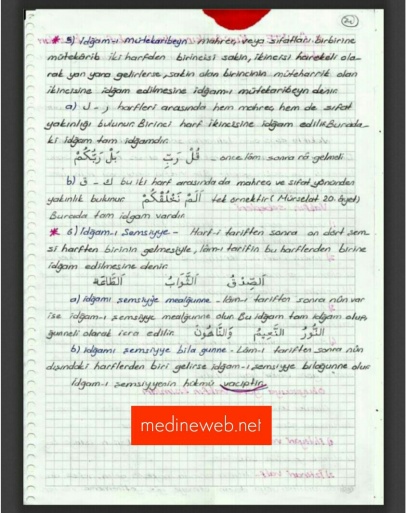 * 5) İdğam-ı mütekaribeyn - mahrec veya sıfatları birbirine
mütekârib iki harfden birincisi sakin, ikincisi harekeli ola-
rak yan yana gelirlerse, sakin olan birincinin müteharrik olan
ikincisine idğam edilmesine idğam-ı mütekaribeyn denir.
a) ل - ر harfleri arasında hem mahrec, hem de sıfat
yakınlığı bulunur. Birinci harf ikincisine idğam edilir. Burada-
ki idğam tam idğamdır.
قُلْ رَبِّ بَلْ رَبُّكُمْ önce lâm sonra râ gelmeli
b) ق - ك bu iki harf arasında da mahrec ve sıfat yönünden
yakınlık bulunur. اَلَمْ نَخْلُقْكُمْ tek örnektir (Mürselat 20. âyet)
Burada tam idğam vardır.
* 6) İdğam-ı Şemsiyye - Harf-i tariften sonra on dört şem-
si harften birinin gelmesiyle, lâm-ı tarifin bu harflerden birine
idğam edilmesine denir.
اَلصِّدْقُ اَلثَّوَابُ اَلطَّاعَة
a) idğamı şemsiyye mealğunne - Lâm-ı tariften sonra nûn var
ise idğam-ı şemsiyye mealğunne olur. Bu idğam tam idğam olup,
ğunneli olarak icra edilir. اَلنُّورُ اَلنَّعِيمُ وَالنَّاهُونَ
b) idğamı şemsiyye bila ğunne - Lâm-ı tariften sonra nûn
dışındaki harflerden biri gelirse idğam-ı şemsiyye bilağunne olur
İdgam-ı şemsiyyenin hükmü vaciptir.
medineweb.net